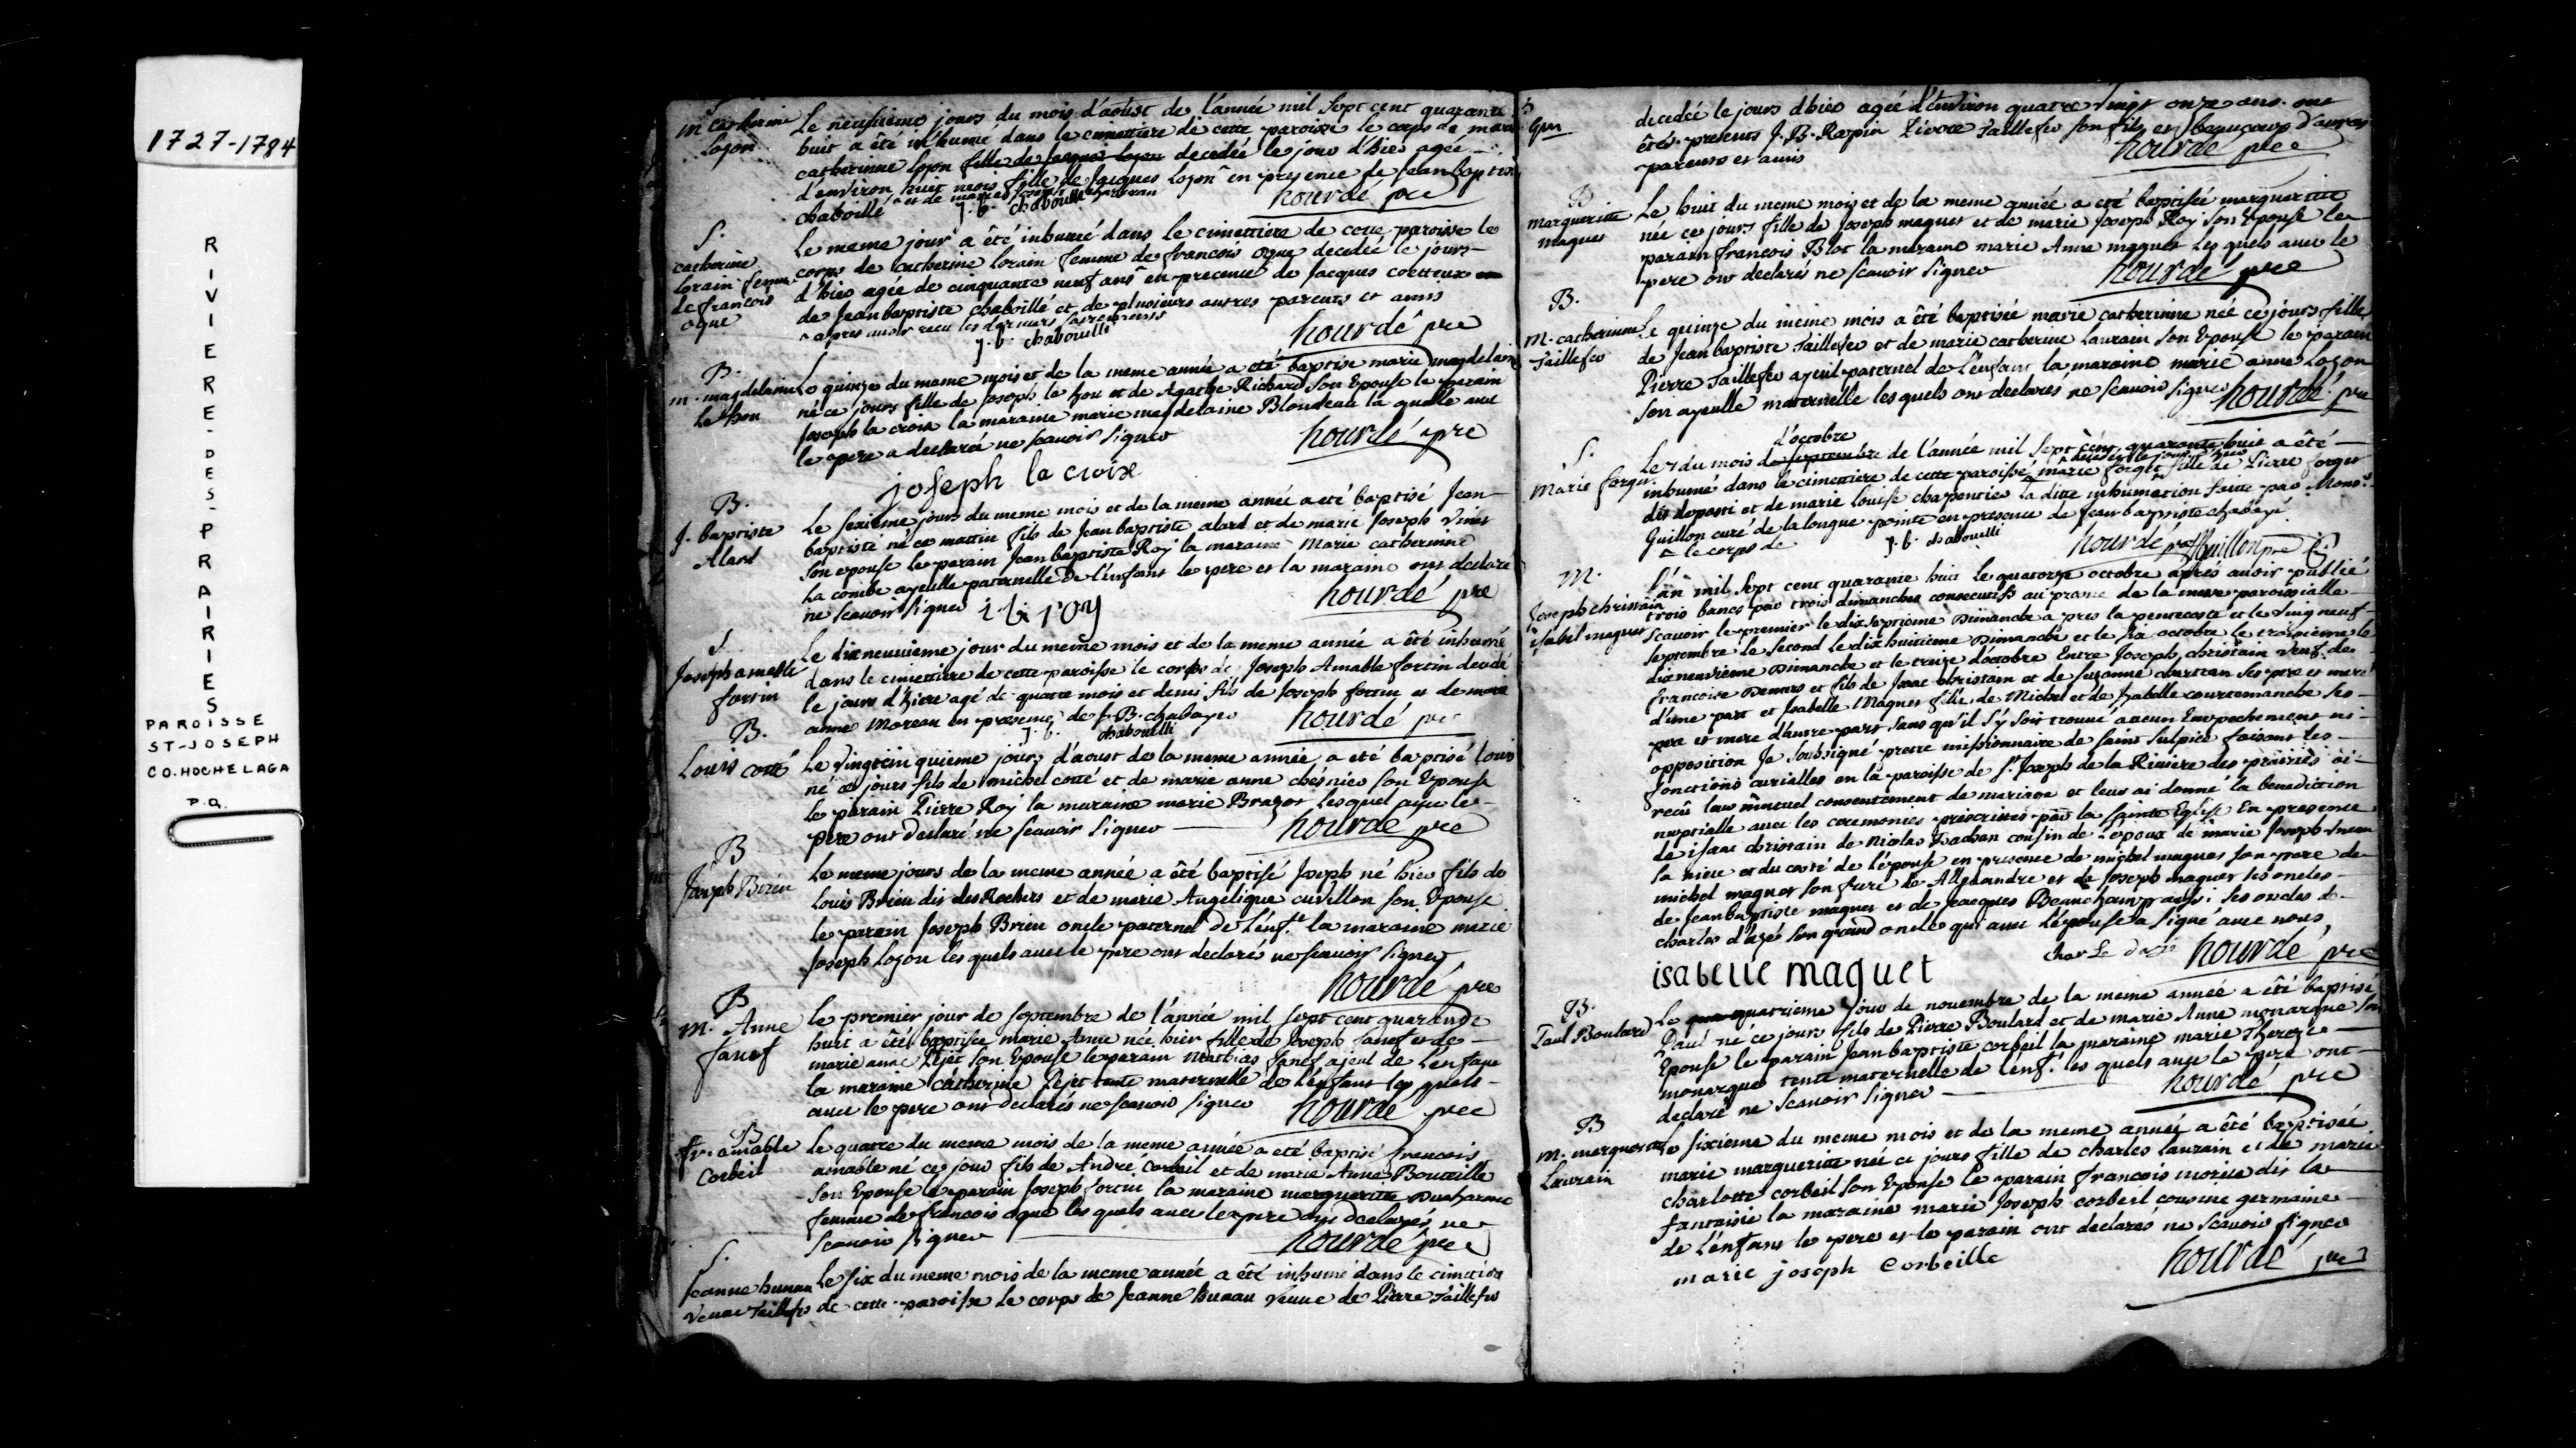 1727-1784
RIVIERE-DES-PRAIRIES
PAROISSE
ST-JOSEPH
CO. HOCHELAGA
P.Q.
S
M catherine
Lozon
Le neufvieme jours du mois d'aoust de l'année mil sept cent quarante
huit a été inhumé dans le cimettiere de cette paroisse le corps de marie
catherinne lozon fille de Jacque lozon decedée le jour d'hier agée
d'environ huit mois fille de Jacques Lozon en presence de Jean baptiste
chaboillé ^ et de marie Joseph
J. b. chabouillé
hourdé pre
S.
catherine
lorain femme
de francois
ogue
Le meme jour a été inhumé dans le cimettiere de cette paroisse le
corps de catherine lorain femme de francois ogue decedée le jours
d'hier agée de cinquante neuf ans ^ en presence de Jacques cotteux
de Jean baptiste chaboillé et de plusieurs autres parents et amis
^ apres avoir recu les derniers sacremens
J. b. chabouillé
hourdé pre
B.
m. magdelaine
Le hou
Le quinze du meme mois et de la meme année a eté baptise marie magdelaine
né ce jours fille de Joseph le hou et de Agathe Richard son Epouse le parain
Joseph la croix la maraine marie magdelaine Blondeau la quelle avec
le pere a declaré ne scavoir signer
hourdé pre
joseph la croix
B.
J. baptiste
Alard
Le sexieme jours du meme mois et de la meme année a eté baptisé Jean
baptiste né ce mattin fils de Jean baptiste alard et de marie Joseph vinet
son epouse le parain Jean baptiste Roy la maraine Marie catherinne
la combe ayeulle paternelle de l'enfant le pere et la maraine ont declaré
ne scavoir signer
i. b. roy
hourdé pre
S
Joseph amable
fortin
Le dixneuvieme jour du meme mois et de la meme année a été inhumé
dans le cimettiere de cette paroisse le corps de Joseph Amable fortin decedé
le jours d'hiere agé de quatre mois et demi fils de Joseph fortin et de marie
anne Moreau en presence de J. B. chaboyer
J. b. chabouillé
hourdé pre
B.
Louis cotté
Le vingtcinquieme jours d'aoust de la meme année a eté baptisé Louis
né ce jours fils de michel cotté et de marie anne chesnier son Epouse
le parain Pierre Roy la maraine marie Brazor lesquel avec le
pere ont declaré ne scavoir signer
hourdé pre
B
Joseph Brien
Le meme jours de la meme année a été baptisé Joseph né hier fils de
Louis Brien dit des Rochers et de marie Angelique cuvillon son Epouse
le parain Joseph Brien oncle paternel de l'enf.t la maraine marie
Joseph Lozon les quels avec le pere ont declarés ne scavoir signer
hourdé pre
B
M. Anne
Janot
le premier jour de septembre de l'année mil sept cent quarante
huit a été baptisée marie Anne née hier fille de Joseph Janot et de
marie anne Pejet son Epouse le parain Mathias Janot ajeul de l'enfant
la maraine catherine Pejet tante maternelle de l'enfant les quels
avec le pere ont declarés ne scavoir signer
hourdé pre
B
fr. amable
Corbeil
Le quatre du meme mois de la meme année a eté baptisé francois
amable né ce jour fils de André Corbeil et de marie Anne Bouteille
son Epouse le parain Joseph fortin la maraine margueritte Ducharme
femme de francois ogue les quels avec le pere ont declarés ne
scavoir signer
hourdé pre
S.
Jeanne bunau
Veuve Taillefer
Le six du meme mois de la meme année a été inhumé dans le cimetiere
de cette paroisse le corps de Jeanne Bunau Veuve de Pierre Taillefer
decedée le jours d'hier agée d'environ quatre vingt onze ans ont
étés presents J. B. Rapin Pierre Taillefer son fils et beaucoup d'autres
parents et amis
hourdé pre
B
margueritte
maguet
Le huit du meme mois et de la meme année a eté baptisée margueritte
née ce jours fille de Joseph maguet et de marie Joseph Roy son Epouse le
parain francois Blot la maraine marie Anne maguet Les quels avec le
pere ont declarés ne scavoir signer
hourdé pre
B.
M. catherinne
Taillefer
Le quinze du meme mois a été baptisée marie catherinne née ce jours fille
de Jean baptiste Taillefer et de marie catherine Laurain son Epouse le parain
Pierre Taillefer ayeul paternel de l'enfant la maraine marie anne Lozon
son ayeulle maternelle les quels ont declarés ne scavoir signer
hourdé pre
S.
Marie forget
d'octobre
Le 7 du mois de septembre de l'année mil sept cent quarante huit a été
decedée le jour d'hier
inhumé dans le cimettiere de cette paroisse marie forget fille de Pierre forget
dit depasti et de marie louise charpentier la ditte inhumation faitte par Mons.r
Guillon curé de la longue pointe en presence de Jean baptiste chaboyé
^ le corps de
J. b. chabouillé
hourdé pre
Guillon pre
M.
Joseph christain
isabel maguet
L'an mil sept cent quarante huit le quatorze octobre aprés avoir publié
trois bancs par trois dimanches consecutifs au prone de la messe paroissialle
scavoir le premier le dix septieme Dimanche a pres la pentecoste et le vingt neuf
septembre le second le dix huitieme Dimanche et le six octobre le troisieme le
dix neuvieme Dimanche et le treize d'octobre Entre Joseph christain veuf de
francoise Demers et fils de Isaac christain et de Suzanne charteau ses pere et mere
d'une part et Isabelle Maguet fille de Michel et de Isabelle courtemanche ses
pere et mere d'autre part sans qu'il s'y soit trouvé aucun Empechement ni
opposition Je soussigné pretre missionnaire de saint sulpice faisant les
fonctions curialles en la paroisse de s.t Joseph de la Riviere des prairies ai
recu leur mutuel consentement de mariage et leur ai donné la benediction
nuptialle avec les ceremonies prescrittes par la sainte Eglise En presence
de isaac christain de Nicolas cousin de l'epoux de marie Joseph
sa niece et du costé de l'épouse en presence de michel maguet son pere de
michel maguet son frere de Allexandre et de Joseph maguet ses oncles
de Jean baptiste maguet et de Jacques Beauchamp aussi ses oncles de
charles d'azé son grand oncle qui avec l'épouse a signé avec nous,
isabelle maguet
Char Le dasé
hourdé pre
B.
Paul Boulard
Le quatrieme jour de novembre de la meme année a été baptisé
Paul né ce jours fils de Pierre Boulard et de marie Anne monarque son
Epouse le parain Jean baptiste corbeil la maraine marie Thereze
monarque tente maternelle de l'enf.t les quels avec le pere ont
declaré ne scavoir signer
hourdé pre
B
M. margueritte
Laurain
Le sixieme du meme mois et de la meme année a été baptisée
marie margueritte née ce jours fille de charles laurain et de marie
charlotte corbeil son Epouse le parain francois morin dit la
fantaisie la maraine marie Joseph corbeil cousine germaine
de l'enfant le pere et le parain ont declaré ne scavoir signer
marie joseph Corbeille
hourdé pre